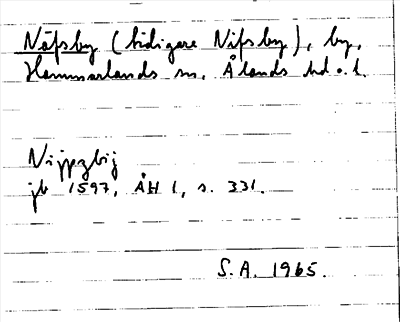 Näfsby (tidigare Nifsby), by,
Hammarlands sn, Ålands hd o. l.
Nijpzbij
jb 1597, ÅH 1, s. 331.
S.A. 1965.